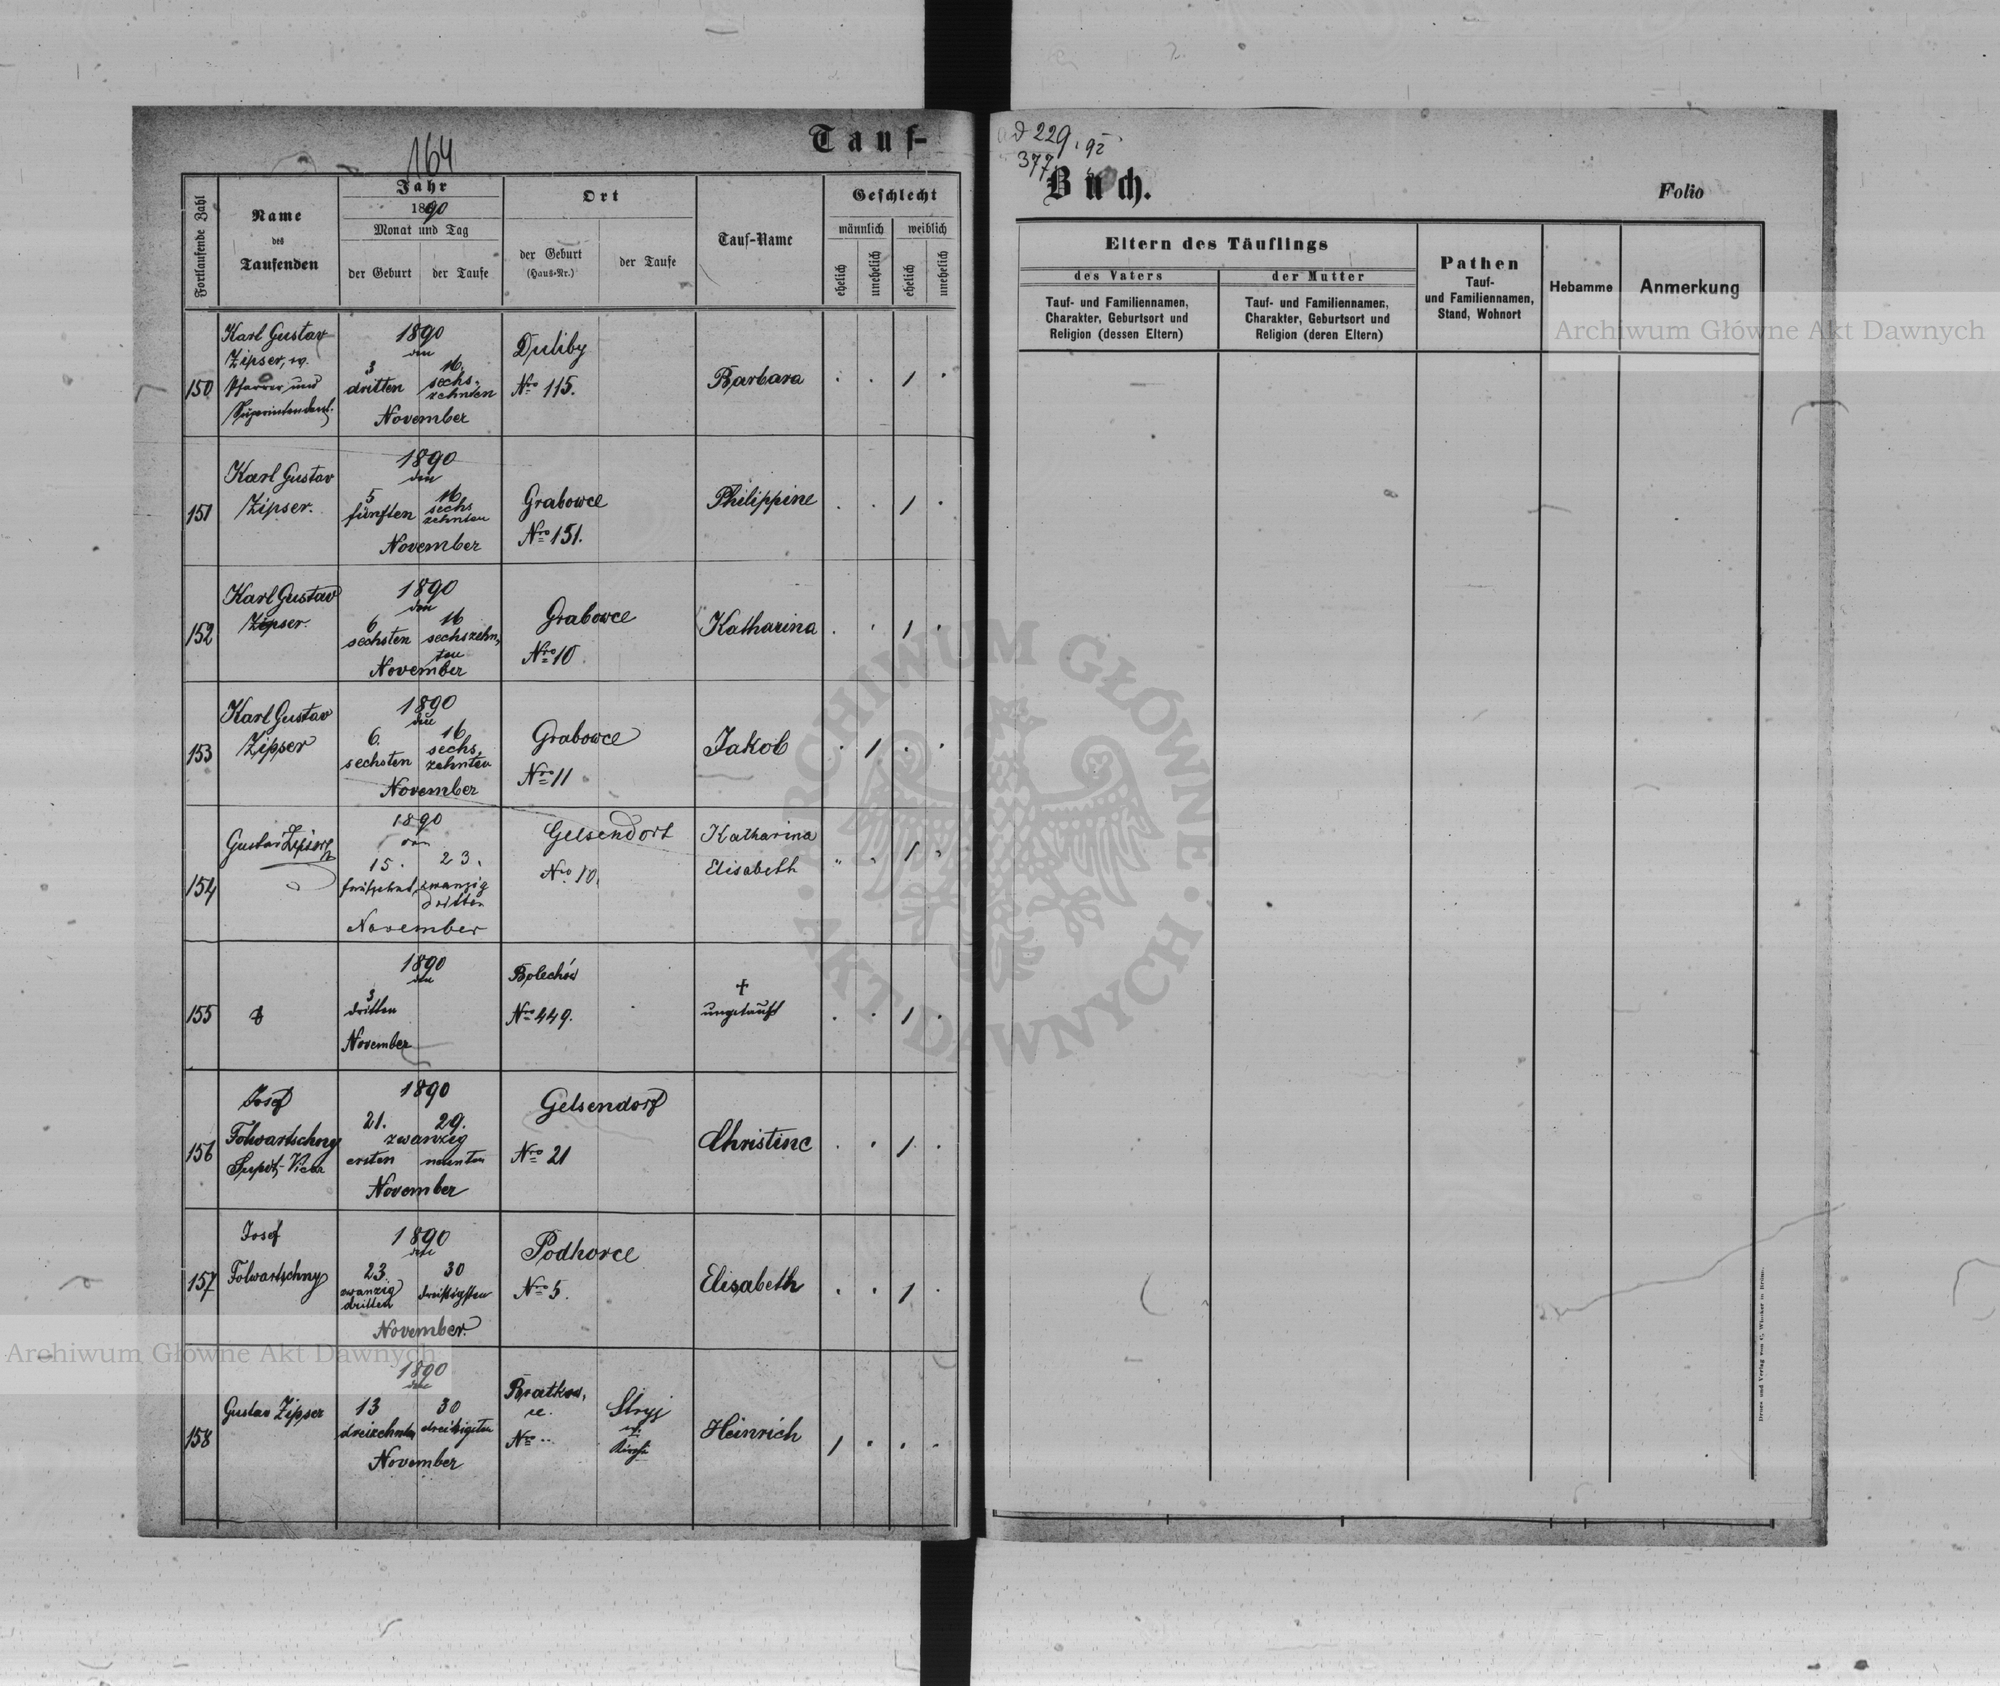 164
Tauf-
Fortlaufende Zahl
Name
des
Taufenden
Jahr
1890
Monat und Tag
der Geburt
der Taufe
Ort
der Geburt
(Haus-Nr.)
der Taufe
Tauf-Name
Geschlecht
männlich
weiblich
ehelich
unehelich
ehelich
unehelich
150
Karl Gustav
Zipser, w.
Pfarrer und
Superintendent.
1890
den
3 16.
dritten sechs-
zehnten
November
Duliby
Nro 115.
Barbara
. . 1 .
151
Karl Gustav
Zipser.
1890
den
5 16
fünften sechs
zehnten
November
Grabowce
Nro 151.
Philippine
. . 1 .
152
Karl Gustav
Zipser.
1890
den
6 16
sechsten sechszehn,
ten
November
Grabowce
Nro 10
Katharina
. . 1 .
153
Karl Gustav
Zipser
1890
den
6. 16
sechsten sechs,
zehnten
November
Grabowce
Nro 11
Jakob
. 1 . .
154
Gustav Zipser
1890
den
15. 23.
zwanzig
dritten
November
Gelsendorf
Nro 10.
Katharina
Elisabeth
" " 1 "
155
1890
den
3
dritten
November
Bolechów
Nro 449.
+
ungetauft
. . 1 .
156
Josef
Folwartschny
Supdt-Vicar
1890
21. 29.
zwanzig
ersten neunten
November
Gelsendorf
Nro 21
Christine
. . 1 .
157
Josef
Folwartschny
1890
den
23 30
zwanzig dreissigsten
dritten
November.
Podhorce
Nro 5.
Elisabeth
. . 1 .
158
Gustav Zipser
1890
den
13 30
dreizehnten dreissigsten
November
Bratkow,
ce.
Nro ..
Stryj
ev.
Kirche
Heinrich
1 . . .
ad 229. 92
377
Buch.
Folio
Eltern des Täuflings
des Vaters
Tauf- und Familiennamen,
Charakter, Geburtsort und
Religion (dessen Eltern)
der Mutter
Tauf- und Familiennamen,
Charakter, Geburtsort und
Religion (deren Eltern)
Pathen
Tauf-
und Familiennamen,
Stand, Wohnort
Hebamme
Anmerkung
Archiwum Główne Akt Dawnych
ARCHIWUM GŁÓWNE
· AKT DAWNYCH ·
Archiwum Główne Akt Dawnych
Druck und Verlag von C. Winiker in Brünn.